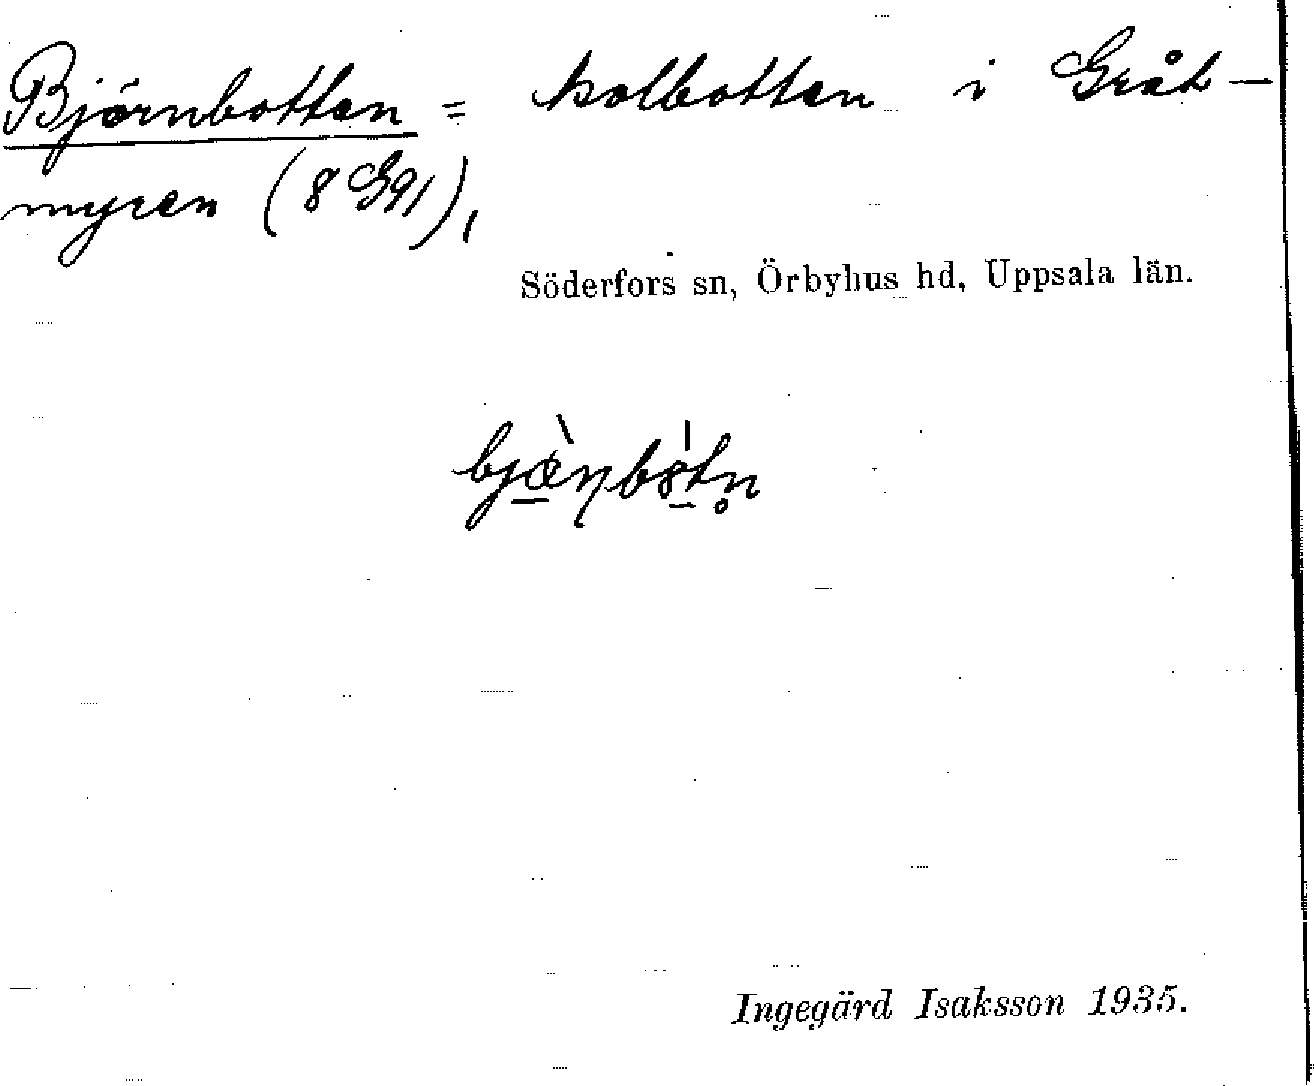 Björnbotten = kolbotten i Gråt-
myren (8 G91),
Söderfors sn, Örbyhus hd, Uppsala län.
Ingegärd Isaksson 1935.